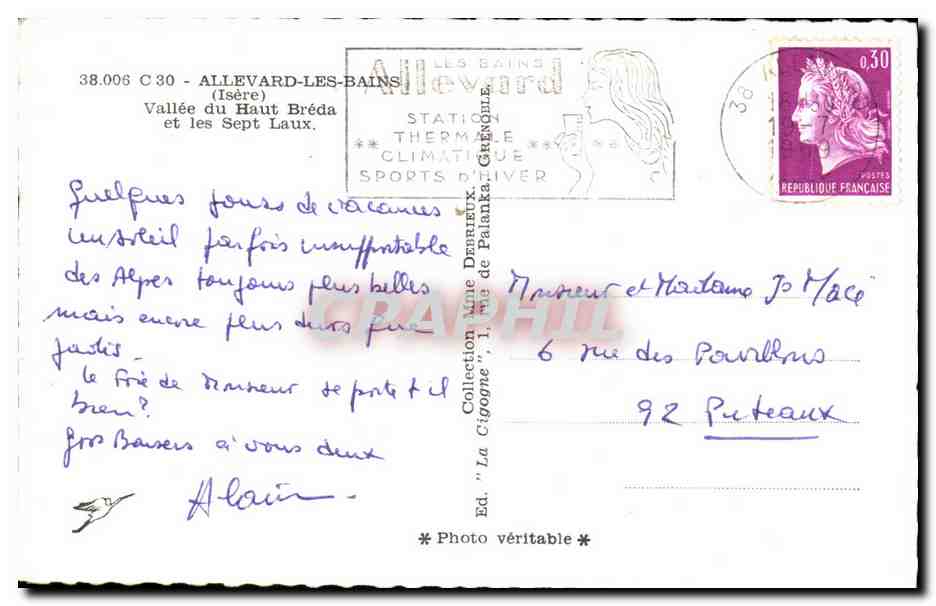 38.006 C 30 - ALLEVARD-LES-BAINS
(Isère)
Vallée du Haut Bréda
et les Sept Laux.
LES BAINS
Allevard
STATION
THERMALE
CLIMATIQUE
SPORTS D'HIVER
38
0,30
POSTES
REPUBLIQUE FRANÇAISE
Quelques jours de vacances
un soleil parfois insupportable
des Alpes toujours plus belles
mais encore plus dures que
jadis.
Le Foie de Monsieur se porte t il
bien?
Gros Baisers à vous deux
Alain
Collection Mme DEBRIEUX.
Ed. "La Cigogne", 1, rue de Palanka, GRENOBLE
Monsieur et Madame Macé
6 rue des Pavillons
92 Puteaux
* Photo véritable *
CPAPHIL